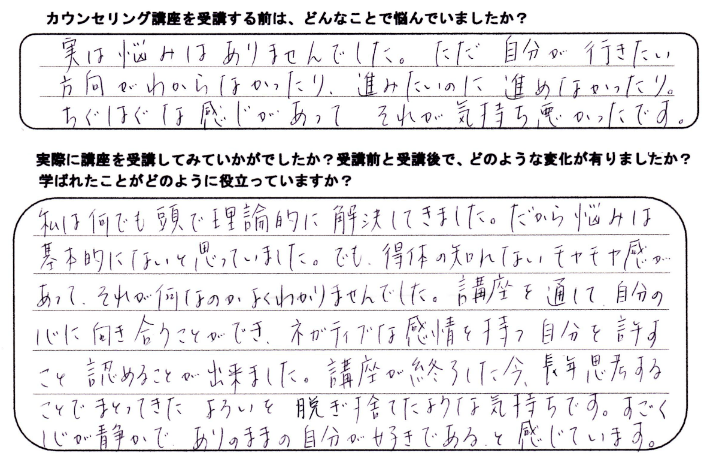 カウンセリング講座を受講する前は、どんなことで悩んでいましたか？
実は悩みはありませんでした。ただ 自分が 行きたい
方向がわからなかったり、進みたいのに 進めなかったり。
ちぐはぐな感じがあって それが気持ち悪かったです。
実際に講座を受講してみていかがでしたか？受講前と受講後で、どのような変化が有りましたか？
学ばれたことがどのように役立っていますか？
私は何でも頭で理論的に解決してきました。だから悩みは
基本的にないと思っていました。でも、得体の知れないモヤモヤ感が
あって、それが何なのかよくわかりませんでした。講座を通して、自分の
心に向き合うことができ、ネガティブな感情を持つ自分を許す
こと 認めることが出来ました。講座が終了した今、長年思考する
ことでまとってきた よろいを 脱ぎ捨てたような気持ちです。すごく
心が静かで、ありのままの自分が好きである、と感じています。